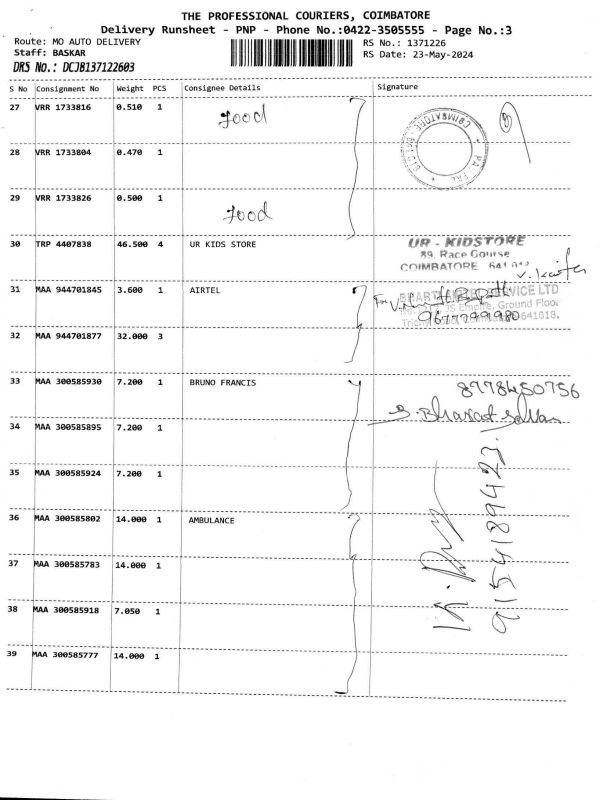 THE PROFESSIONAL COURIERS, COIMBATORE
Delivery Runsheet - PNP - Phone No.:0422-3505555 - Page No.:3
Route: MO AUTO DELIVERY
Staff: BASKAR
DRS NO.: DCJB137122603
RS No.: 1371226
RS Date: 23-May-2024
S No Consignment No Weight PCS Consignee Details Signature
27 VRR 1733816 0.510 1 Food
28 VRR 1733804 0.470 1
29 VRR 1733826 0.500 1 Food
COIMBATORE
30 TRP 4407838 46.500 4 UR KIDS STORE
UR - KIDSTORE
89, Race Course
COIMBATORE
31 MAA 944701845 3.600 1 AIRTEL
SERVICE LTD
Empire, Ground Floor
641018.
32 MAA 944701877 32.000 3
33 MAA 300585930 7.200 1 BRUNO FRANCIS
8778450756
S. Bharat
34 MAA 300585895 7.200 1
35 MAA 300585924 7.200 1
36 MAA 300585802 14.000 1 AMBULANCE
9154189423
37 MAA 300585783 14.000 1
38 MAA 300585918 7.050 1
39 MAA 300585777 14.000 1